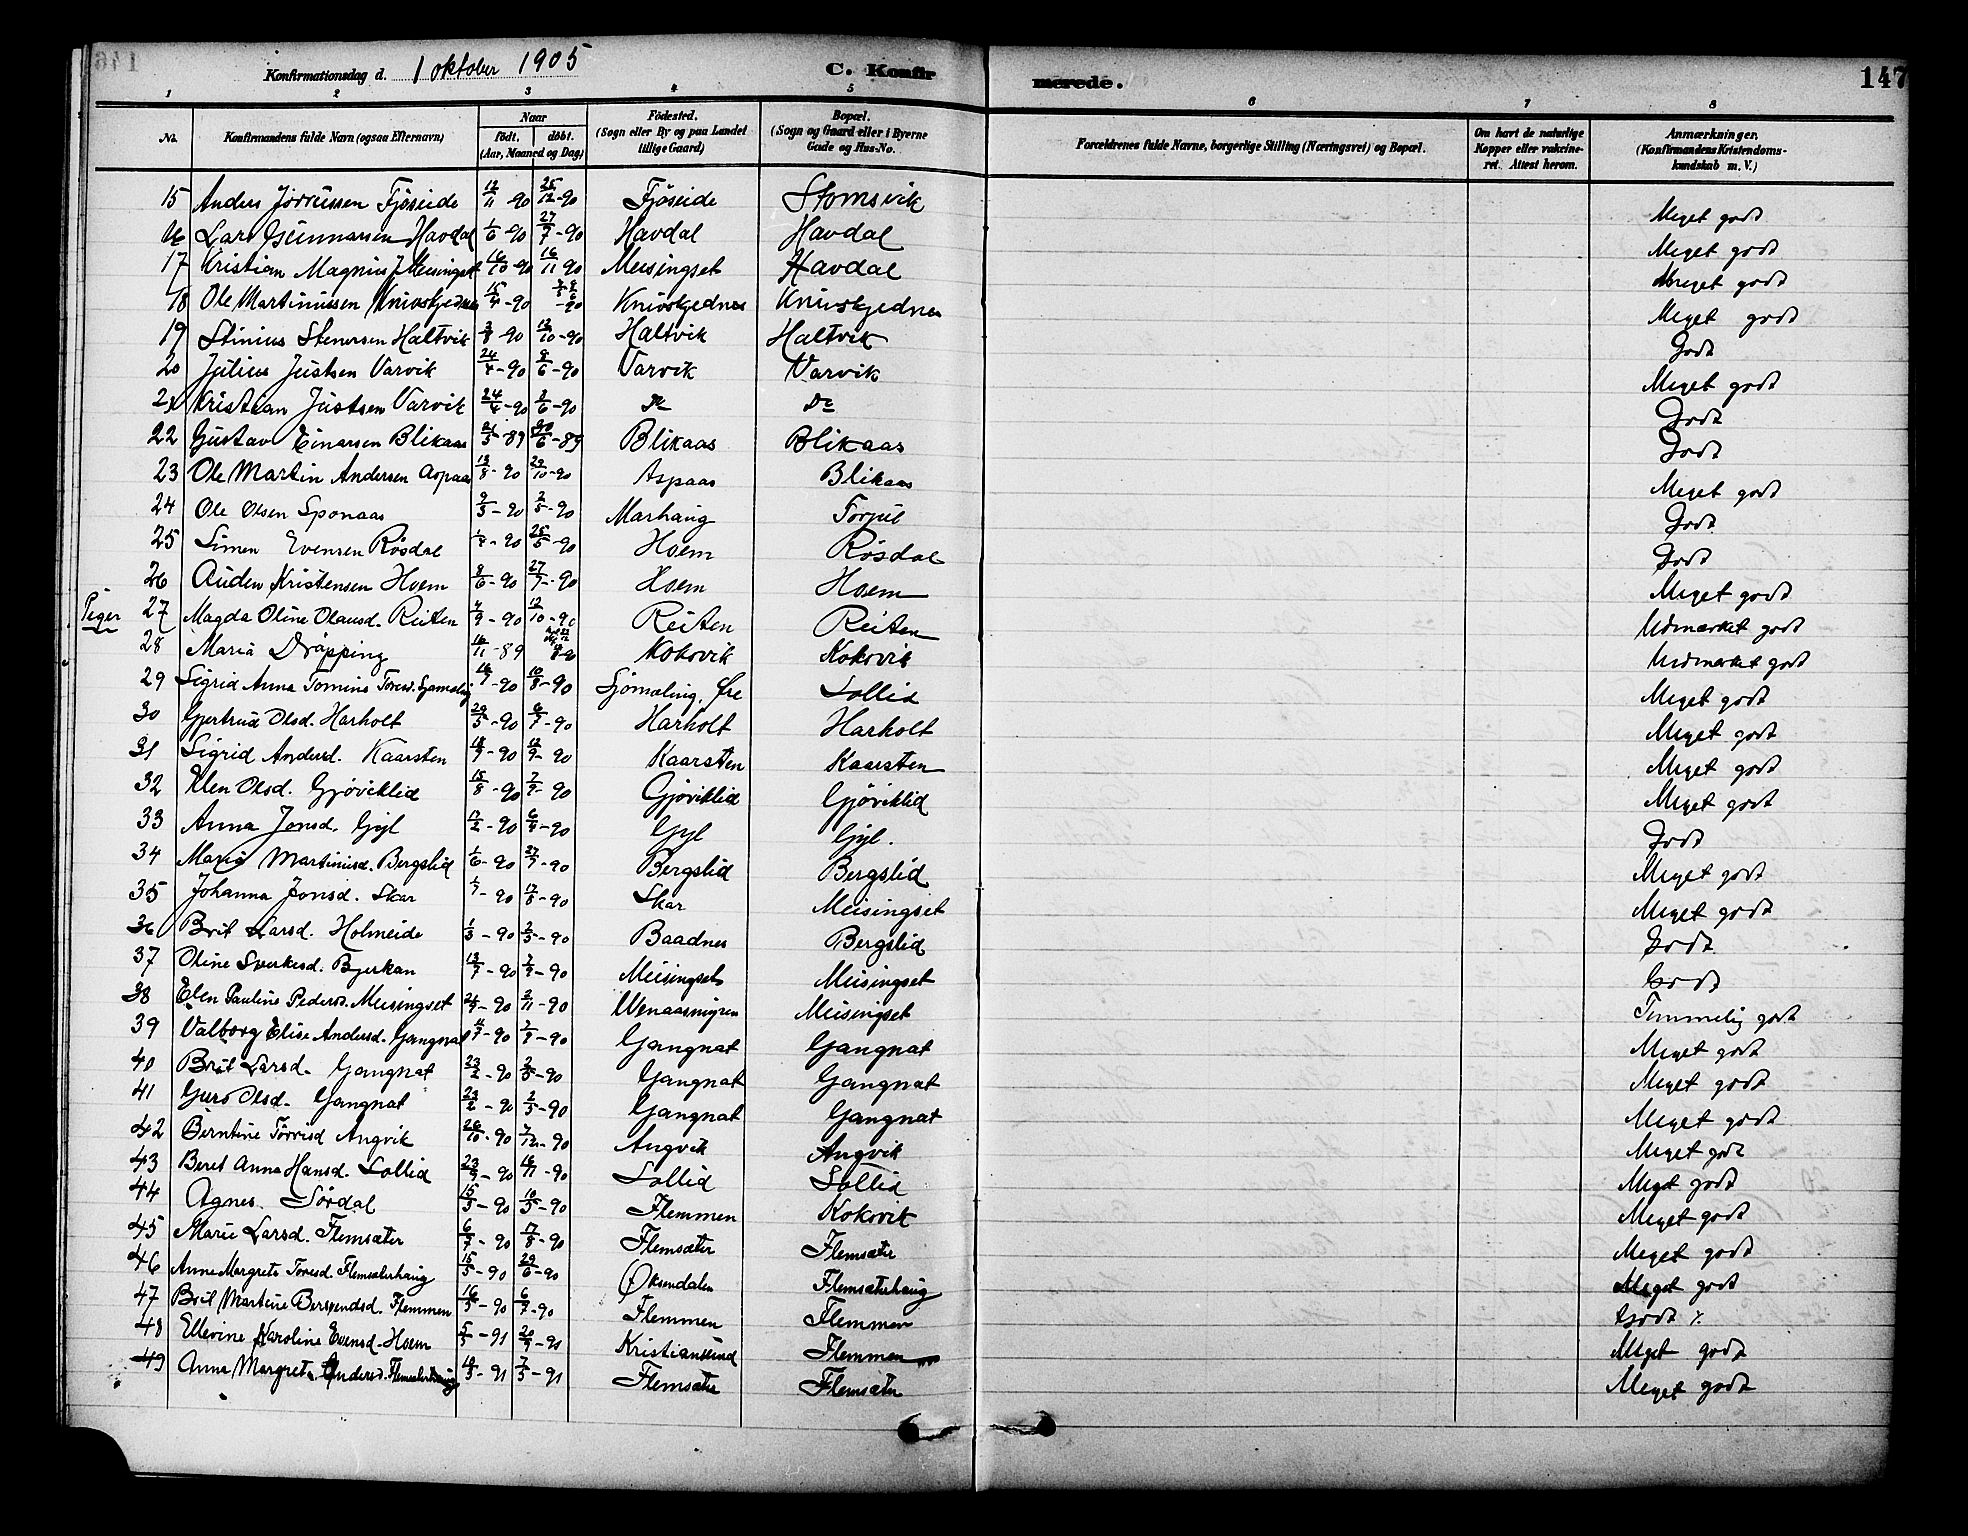 Konfirmationsdag d. 1 oktober 1905 C. Konfir merede. 147
1 2 3 4 5 6 7 8
No. Konfirmandens fulde Navn (ogsaa Efternavn) Naar født. døbt. (Aar, Maaned og Dag) Fødested. (Sogn eller By og paa Landet tillige Gaard) Bopæl. (Sogn og Gaard eller i Byerne Gade og Hus-No. Forældrenes fulde Navne, borgerlige Stilling (Næringsvei) og Bopæl. Om havt de naturlige Kopper eller vakcineret. Attest herom. Anmærkninger. (Konfirmandens Kristendomskundskab m. V.)
15 Anders Fjøseide 12/11 -90 25/12 -90 Fjøseide Stomsvik Meget godt
16 Lars Gunnarsen Havdal 1/6 -90 27/7 -90 Havdal Havdal Meget godt
17 Kristian Magnus J. Meisingset 16/10 -90 16/11 90 Meisingset Havdal Meget godt
18 Ole Martinussen Knivskjednes 15/4 -90 -90 Knivskjednes Knivskjednes Meget godt
19 Stinius Stenersen Haltvik 3/8 -90 12/10 -90 Haltvik Haltvik Godt
20 Julius Justsen Varvik 24/4 -90 8/6 -90 Varvik Varvik Meget godt
21 Kristian Justsen Varvik 24/4 -90 8/6 -90 Do Do Godt
22 Gustav Einarsen Blikaas 21/5 -89 30/6 -89 Blikaas Blikaas Godt
23 Ole Martin Andersen Aspaas 13/8 -90 20/10 -90 Aspaas Blikaas Meget godt
24 Ole Olsen Sponaas 9/3 -90 2/5 -90 Marhaug Torjul Godt
25 Simen Evensen Røsdal 1/4 -90 25/5 -90 Hoem Røsdal Godt
26 Auden Kristensen Hoem 8/6 -90 27/7 -90 Hoem Hoem Meget godt
Piger 27 Magda Oline Olausd. Reiten 4/9 -90 12/10 -90 Reiten Reiten Udmærket godt
28 Maria Drøpping 16/11 -89 Koksvik Koksvik Udmærket godt
29 Sigrid Anna Tomine Toresd. Sjømæling 16/7 -90 10/8 -90 Sjømæling, Øre Sollid Meget godt
30 Gjertrud Olsd. Harholt 20/5 -90 6/7 -90 Harholt Harholt Meget godt
31 Sigrid Andersd. Kaarsten 18/7 -90 12/9 -90 Kaarsten Kaarsten Meget godt
32 Elen Olsd. Gjøviklid 15/8 -90 7/9 -90 Gjøviklid Gjøviklid Meget godt
33 Anna Jonsd. Gyl 12/2 -90 6/4 -90 Gyl Gyl. Godt
34 Maria Martinusd. Bergslid 1/6 -90 27/7 -90 Bergslid Bergslid Meget godt
35 Johanna Jonsd. Skar 1/7 -90 17/8 -90 Skar Meisingset Meget godt
36 Brit Larsd. Holmeide 1/3 -90 2/5 -90 Baadnes Bergslid Godt
37 Oline Sverkesd. Bjerkan 13/7 -90 7/9 -90 Meisingset Meisingset Godt
38 Elen Pauline Pedersd. Meisingset 24/9 -90 2/11 -90 Meisingset Temmelig godt
39 Valborg Elise Andersd. Gangnat 11/7 -90 7/9 -90 Gangnat Gangnat Meget godt
40 Brit Larsd. Gangnat 23/2 -90 2/5 -90 Gangnat Gangnat Meget godt
41 Guro Olsd. Gangnat 23/2 -90 2/5 -90 Gangnat Gangnat Meget godt
42 Berntine Tørrisd Angvik 26/10 -90 7/12 -90 Angvik Angvik Meget godt
43 Beret Anna Hansd. Sollid 23/9 -90 16/11 -90 Sollid Sollid Meget godt
44 Agnes Sørdal 15/3 -90 10/5 -90 Flemmen Koksvik Meget godt
45 Marie Larsd. Flemsæter 6/7 -90 17/8 -90 Flemsæter Flemsæter Meget godt
46 Anne Margrete Toresd. Flemsæterhaug 15/5 -90 29/6 -90 Øksendalen Flemsæterhaug Meget godt
47 Brit Martine Bersvendsd. Flemmen 16/5 -90 6/7 -90 Flemmen Flemmen Godt %
48 Ellevine Karoline Evensd. Hoem 5/5 -91 20/9 -91 Kristiansund Flemmen Meget godt
49 Anne Margrete Andersd. Flemsæterhaug 18/3 -91 7/5 -91 Flemsæter Flemsæter Meget godt